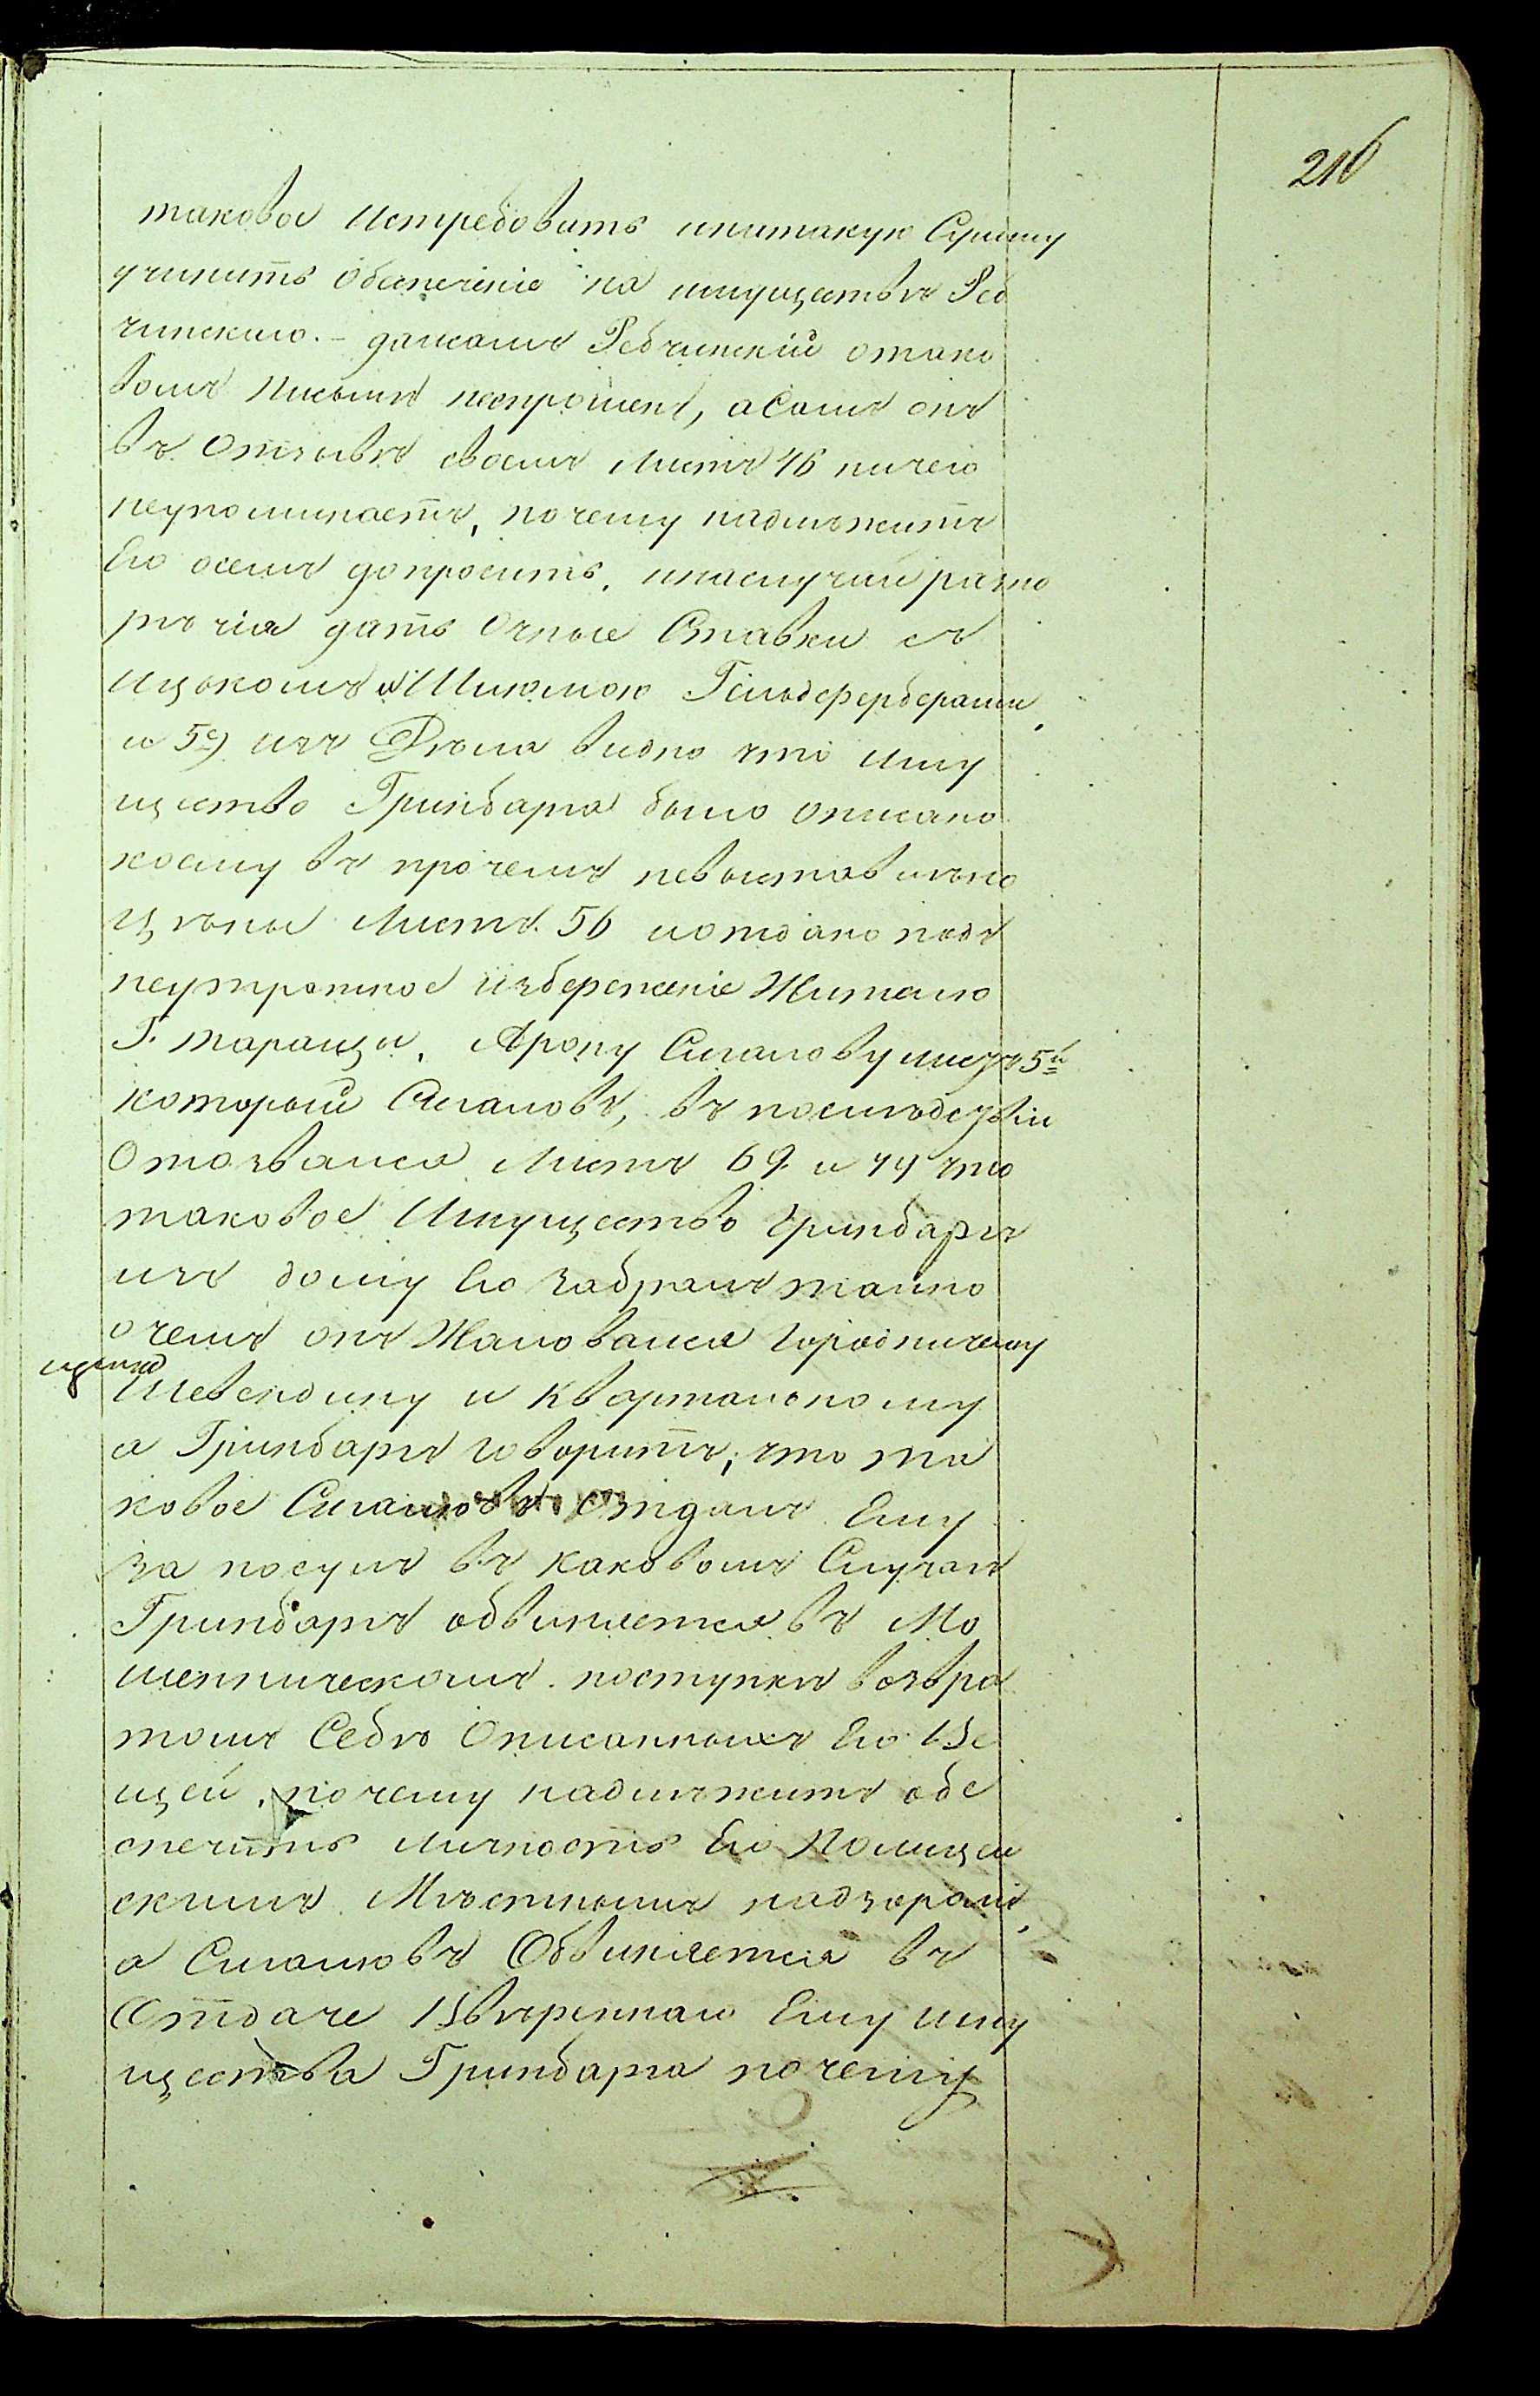 216
таковое истребовать инатакую Сумму
учинить обеспечение на имуществе Реб
чинскаго. – дажалъ Ребчинскій отако
вомъ письмѣ неспрошенъ, а Самъ онъ
въ Отзывѣ своемъ Листъ 46 ничего
неупоминаетъ, почему надлѣжитъ
Его осемъ допросить, инаслучай разно
рѣчія дать Очные Ставки съ
Ицькомъ и Шлюмою Гельдфербераами,
и 5е) изъ Дѣла видно что иму
щество Гринбарга было описано
коему въ прочемъ невыставлѣно
цѣны Листъ 56 иотдано подъ
неутратное избереженіе Жителю
Г. Таращи, Арону Смалову листъ 5й
который Смаловъ, въ послѣдствіи
Отозвался Листъ 69 и 74 что
таковое Имущество Гринбаргъ
изъ дому Его забралъ тайно
очемъ онъ Жаловался Городничему
Шевендину и Квартальному
а Гринбаргъ говоритъ, что та
ковое Смаловъ Отдалъ Ему
за посулъ въ каковомъ Случаѣ
Гринбаргъ обвиняется въ Мо
шенническомъ поступкѣ возвра
томъ Себѣ Описанныхъ Его Ве
щей, почему надлѣжитъ обе
спечить личность Его Полицей
скимъ Мѣстнымъ надзоромъ,
а Смаловъ Обвиняется въ
Отдаче Ввѣреннаго Ему иму
щества Гринбарга почему